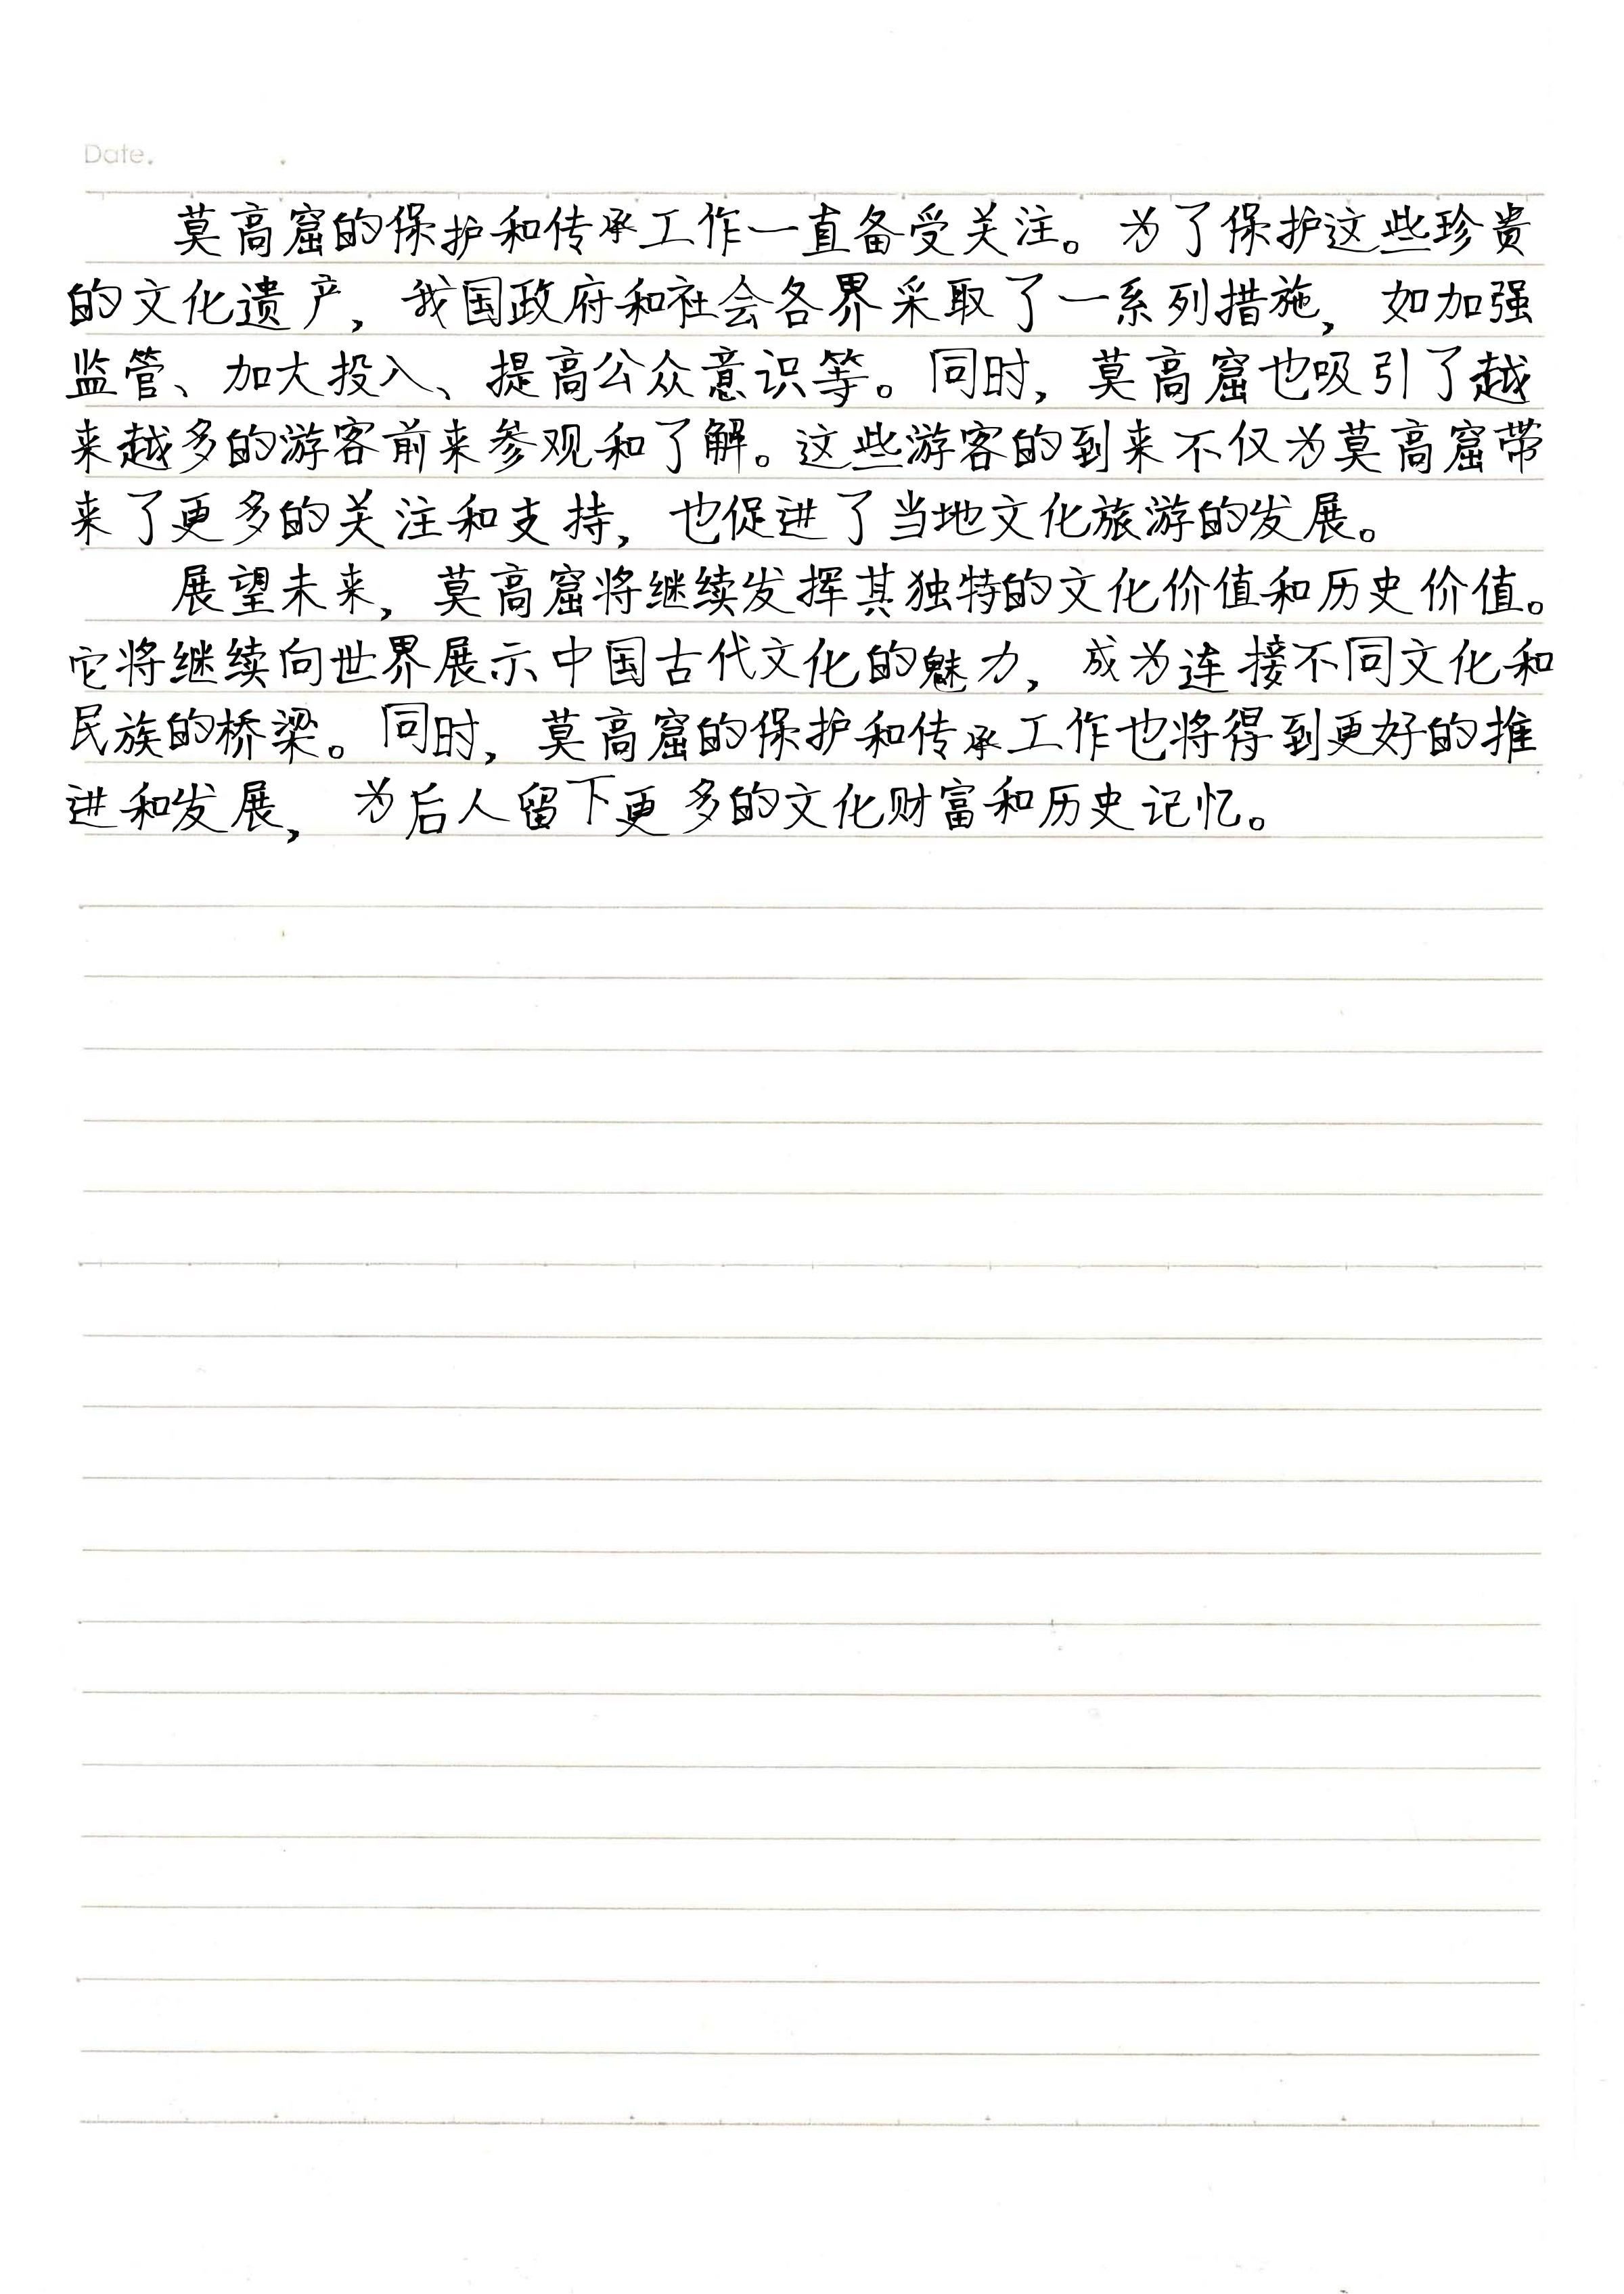 Date.
莫高窟的保护和传承工作一直备受关注。为了保护这些珍贵
的文化遗产，我国政府和社会各界采取了一系列措施，如加强
监管、加大投入、提高公众意识等。同时，莫高窟也吸引了越
来越多的游客前来参观和了解。这些游客的到来不仅为莫高窟带
来了更多的关注和支持，也促进了当地文化旅游的发展。
展望未来，莫高窟将继续发挥其独特的文化价值和历史价值。
它将继续向世界展示中国古代文化的魅力，成为连接不同文化和
民族的桥梁。同时，莫高窟的保护和传承工作也将得到更好的推
进和发展，为后人留下更多的文化财富和历史记忆。